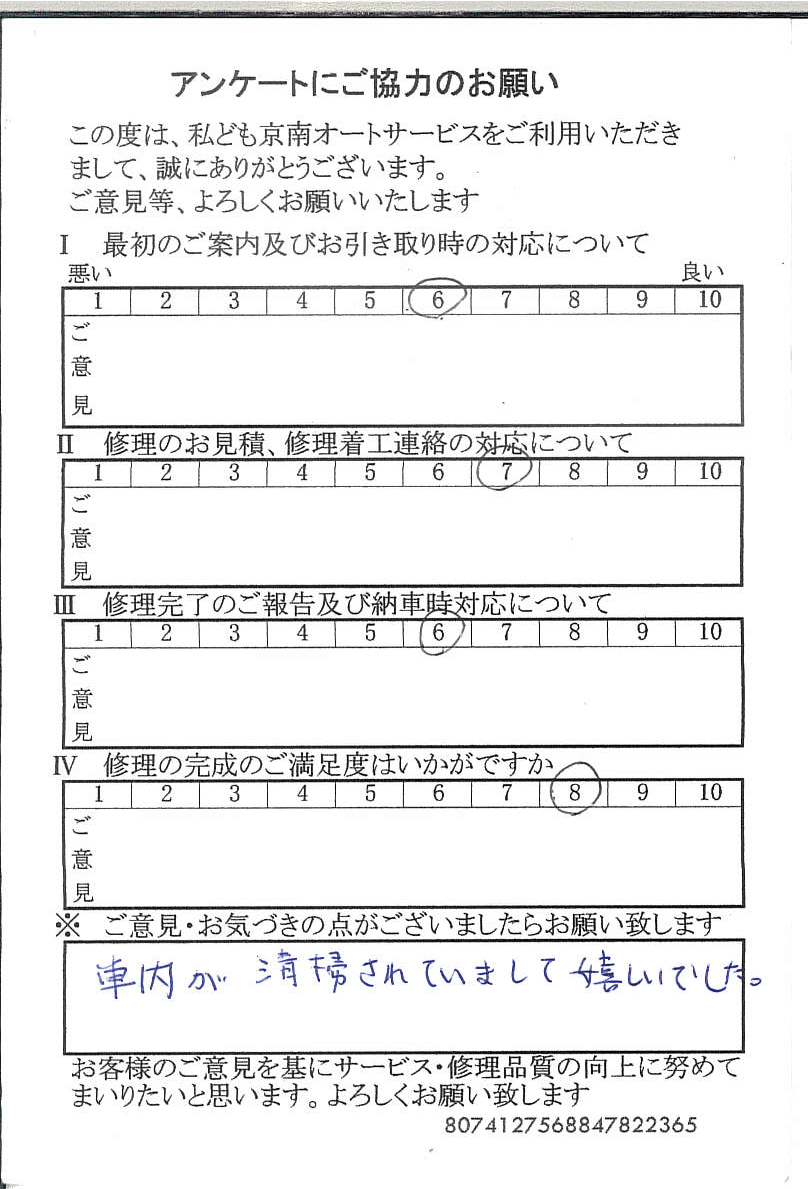 アンケートにご協力のお願い
この度は、私ども京南オートサービスをご利用いただき
まして、誠にありがとうございます。
ご意見等、よろしくお願いいたします
Ⅰ 最初のご案内及びお引き取り時の対応について
悪い 良い
1 2 3 4 5 6 7 8 9 10
ご
意
見
Ⅱ 修理のお見積、修理着工連絡の対応について
1 2 3 4 5 6 7 8 9 10
ご
意
見
Ⅲ 修理完了のご報告及び納車時対応について
1 2 3 4 5 6 7 8 9 10
ご
意
見
Ⅳ 修理の完成のご満足度はいかがですか
1 2 3 4 5 6 7 8 9 10
ご
意
見
※ ご意見・お気づきの点がございましたらお願い致します
車内が清掃されていまして嬉しいでした。
お客様のご意見を基にサービス・修理品質の向上に努めて
まいりたいと思います。よろしくお願い致します
8074127568847822365